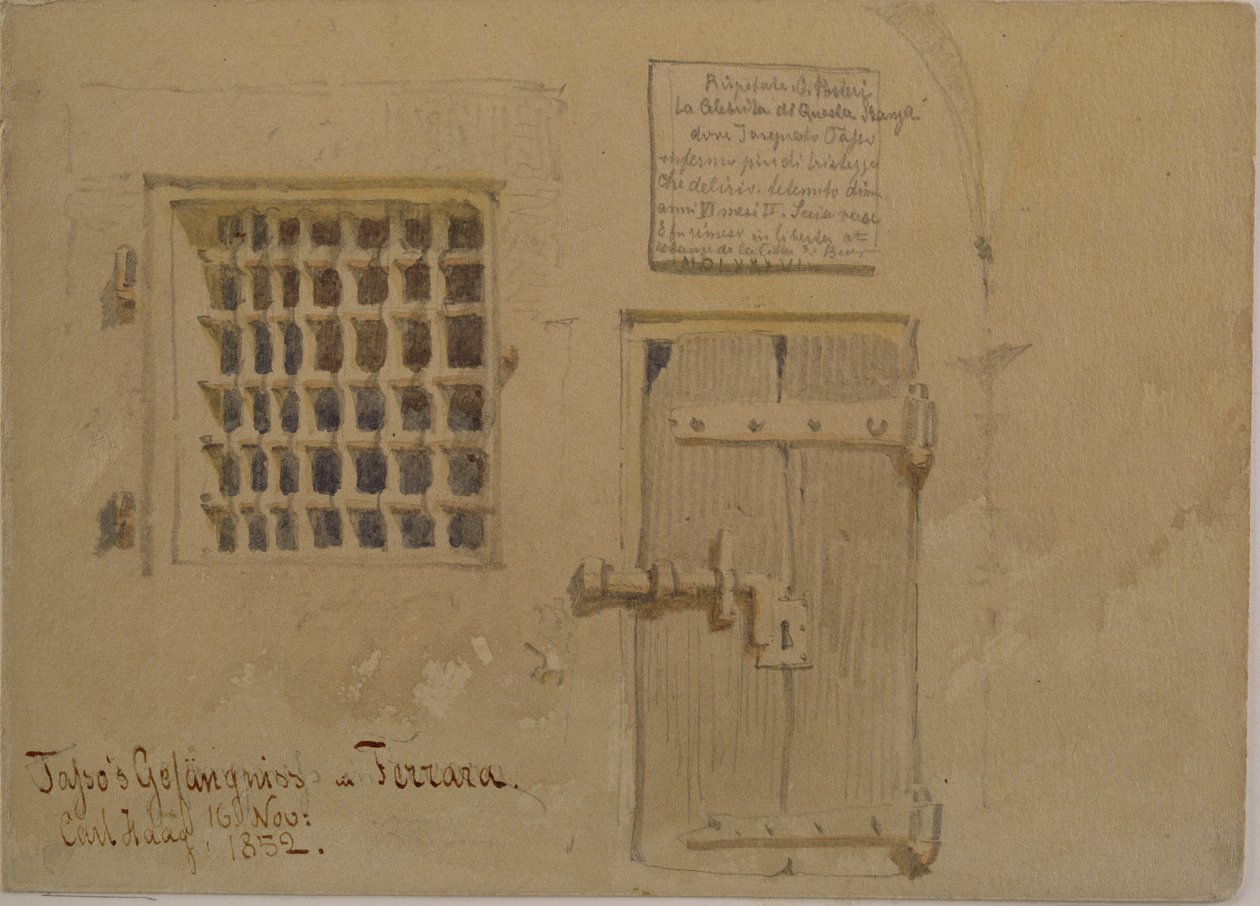 Rispetate, O. Posteri
La Celebrita di Questa Stanza
dove Torquato Tasso
infermo piu di tristezza
Che delirio. detenuto dimo
anni VI mesi II. Scrisse verse
E fu rimeso in liberta at
estanze de la Citta di Ber
MDLXXXVI
Taſso's Gefängniss in Ferrara.
Carl Haag, 16. Nov:
1852.